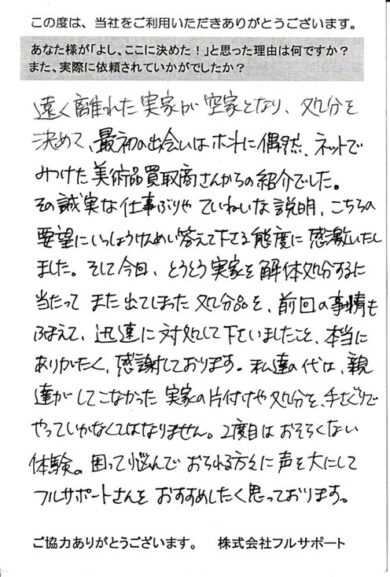 この度は、当社をご利用いただきありがとうございます。
あなた様が「よし、ここに決めた！」と思った理由は何ですか？
また、実際に依頼されていかがでしたか？
遠く離れた実家が空家となり、処分を
決めて、最初の出会いはホントに偶然、ネットで
みつけた美術品買取商さんからの紹介でした。
その誠実な仕事ぶりやていねいな説明、こちらの
要望にいっしょうけんめい答えて下さる態度に感激いたし
ました。そして今回、とうとう実家を解体処分するに
当たってまた出てしまった処分品を、前回の事情も
ふまえて、迅速に対処して下さいましたこと、本当に
ありがたく、感謝しております。私達の代は、親
達がしてこなかった実家の片付けや処分を、手さぐりで
やっていかなくてはなりません。2度目はおそらくない
体験。困って悩んでおられる方々に声を大にして
フルサポートさんをおすすめしたく思っております。
ご協力ありがとうございます。 株式会社フルサポート